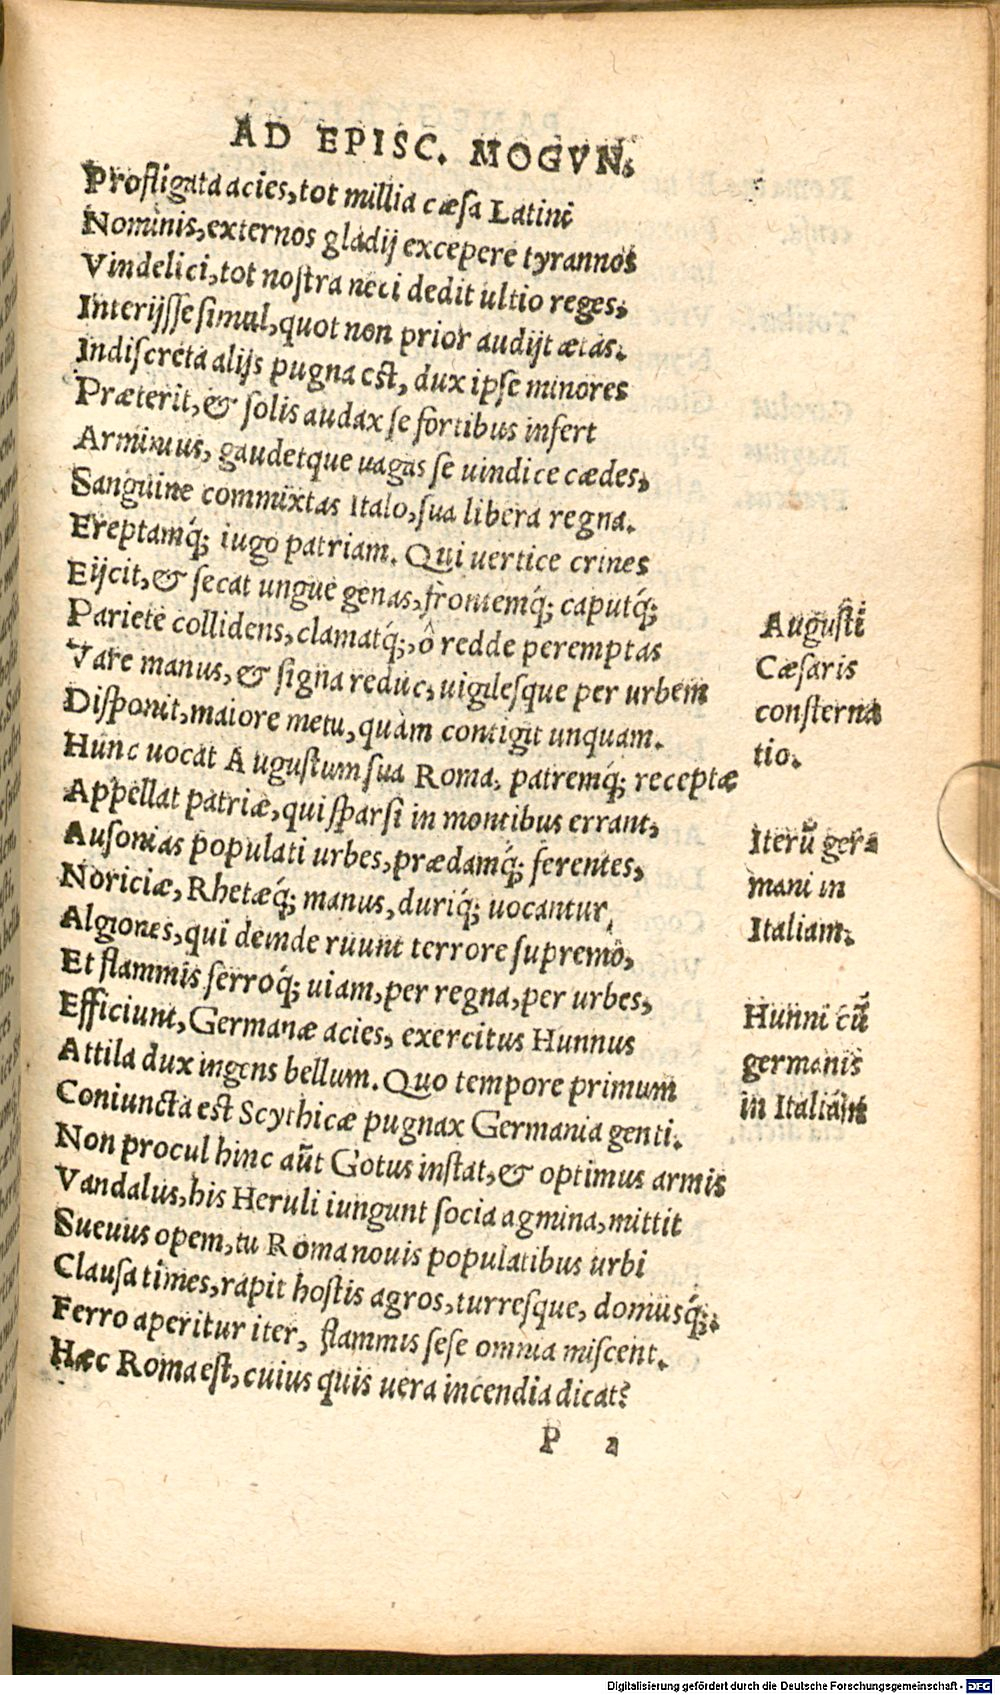 AD EPISC. MOGVN.
Profligata acies, tot millia cæſa Latini
Nominis, externos gladij excepere tyrannos
Vindelici, tot noſtra neci dedit ultio reges,
Interijſſe ſimul, quot non prior audijt ætas.
Indiſcreta alijs pugna eſt, dux ipſe minores
Præterit, & ſolis audax ſe fortibus infert
Arminius, gaudetque uagas ſe uindice cædes,
Sanguine commixtas Italo, ſua libera regna.
Ereptamq́; iugo patriam. Qui uertice crines
Eijcit, & ſecat ungue genas, frontemq́; caputq́;
Pariete collidens, clamatq́;, ô redde peremptas
Vare manus, & ſigna reduc, uigilesque per urbem
Diſponit, maiore metu, quàm contigit unquam.
Hunc uocat Auguſtum ſua Roma, patremq́; receptæ
Appellat patriæ, qui ſparſi in montibus errant,
Auſonias populati urbes, prædamq́; ferentes,
Noriciæ, Rhetæq́; manus, duriq́; uocantur,
Algiones, qui deinde ruunt terrore ſupremo,
Et flammis ferroq́; uiam, per regna, per urbes,
Efficiunt, Germanæ acies, exercitus Hunnus
Attila dux ingens bellum. Quo tempore primum
Coniuncta eſt Scythicæ pugnax Germania genti.
Non procul hinc aūt Gotus inſtat, & optimus armis
Vandalus, his Heruli iungunt ſocia agmina, mittit
Sueuus opem, tu Roma nouis populatibus urbi
Clauſa times, rapit hoſtis agros, turresque, domusq́;.
Ferro aperitur iter, flammis ſeſe omnia miſcent.
Hæc Roma eſt, cuius quis uera incendia dicat?
P a
Auguſti
Cæſaris
conſterna
tio.
Iterū ger=
mani in
Italiam.
Hunni cū
germanis
in Italiam
Digitalisierung gefördert durch die Deutsche Forschungsgemeinschaft - DFG